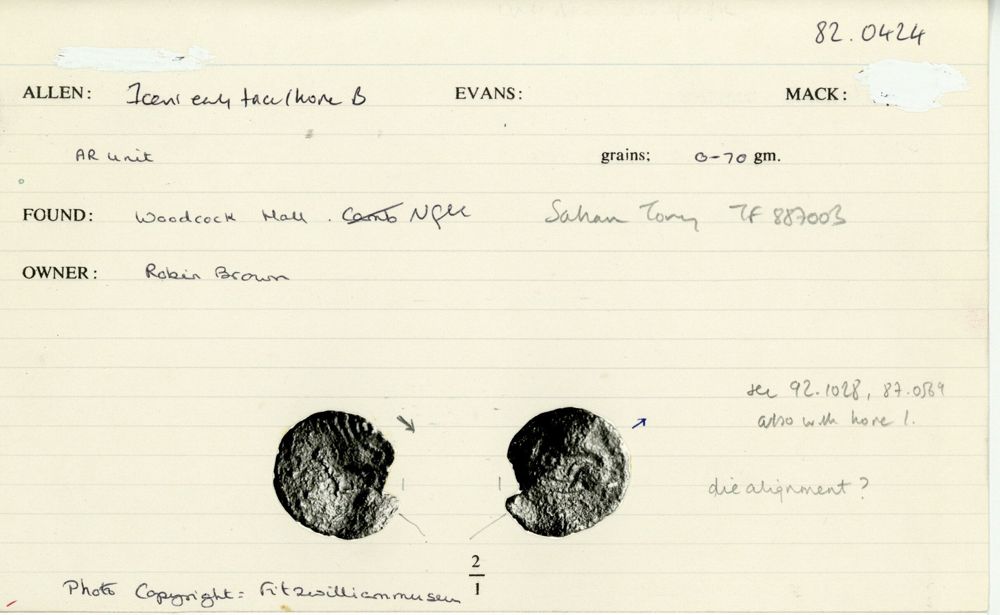 82.0424
ALLEN: Iceni early face/horse B EVANS: MACK:
AR unit grains; 0-70 gm.
FOUND: Woodcock Hall. Camb Nflk Saham Toney TF 887003
OWNER: Robin Brown
see 92.1028, 87.0569
also with horse l.
die alignment?
2
1
Photo Copyright: Fitzwilliam museum